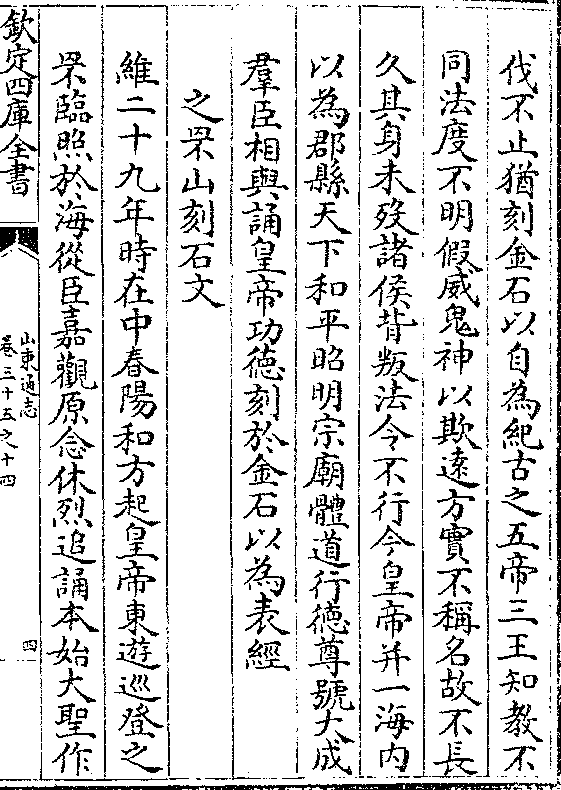 伐不止猶刻金石以自為紀古之五帝三王知教不
同法度不明假威鬼神以欺遠方實不稱名故不長
久其身未歿諸侯背叛法令不行今皇帝并一海内
以為郡縣天下和平昭明宗廟體道行徳尊號大成
羣臣相與誦皇帝功徳刻於金石以為表經
之罘山刻石文
維二十九年時在中春陽和方起皇帝東遊巡登之
罘臨照於海從臣嘉觀原念休烈追誦本始大聖作
欽定四庫全書
山東通志
卷三十五之十四
四